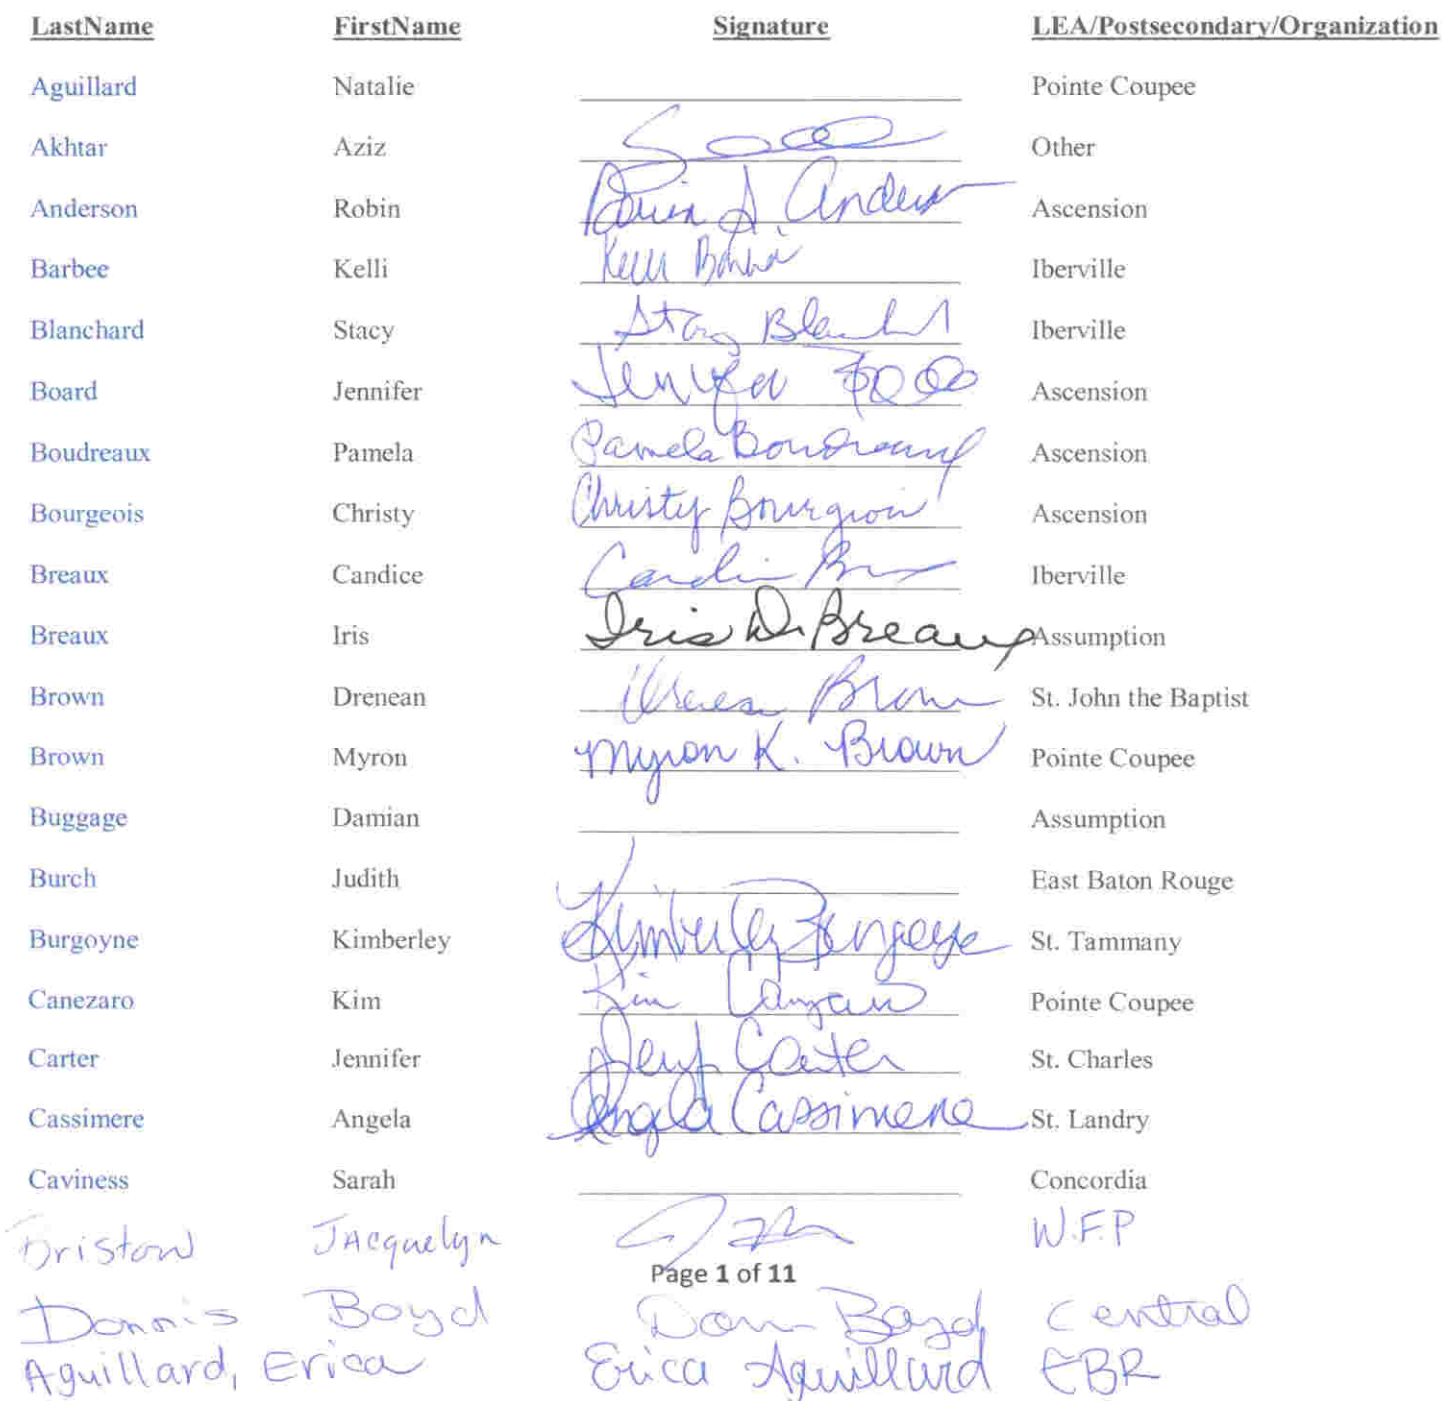 LastName FirstName Signature LEA/Postsecondary/Organization
Aguillard Natalie Pointe Coupee
Akhtar Aziz Other
Anderson Robin Robin A. Anderson Ascension
Barbee Kelli Kelli Barbee Iberville
Blanchard Stacy Stacy Blanchard Iberville
Board Jennifer Jennifer Board Ascension
Boudreaux Pamela Pamela Boudreaux Ascension
Bourgeois Christy Christy Bourgeois Ascension
Breaux Candice Candice Breaux Iberville
Breaux Iris Iris D. Breaux Assumption
Brown Drenean Drenean Brown St. John the Baptist
Brown Myron Myron K. Brown Pointe Coupee
Buggage Damian Assumption
Burch Judith East Baton Rouge
Burgoyne Kimberley Kimberley Burgoyne St. Tammany
Canezaro Kim Kim Canezaro Pointe Coupee
Carter Jennifer Jenf Carter St. Charles
Cassimere Angela Angela Cassimere St. Landry
Caviness Sarah Concordia
Bristow Jacquelyn W.F.P
Page 1 of 11
Donnis Boyd Donn Boyd Central
Aguillard, Erica Erica Aguillard EBR